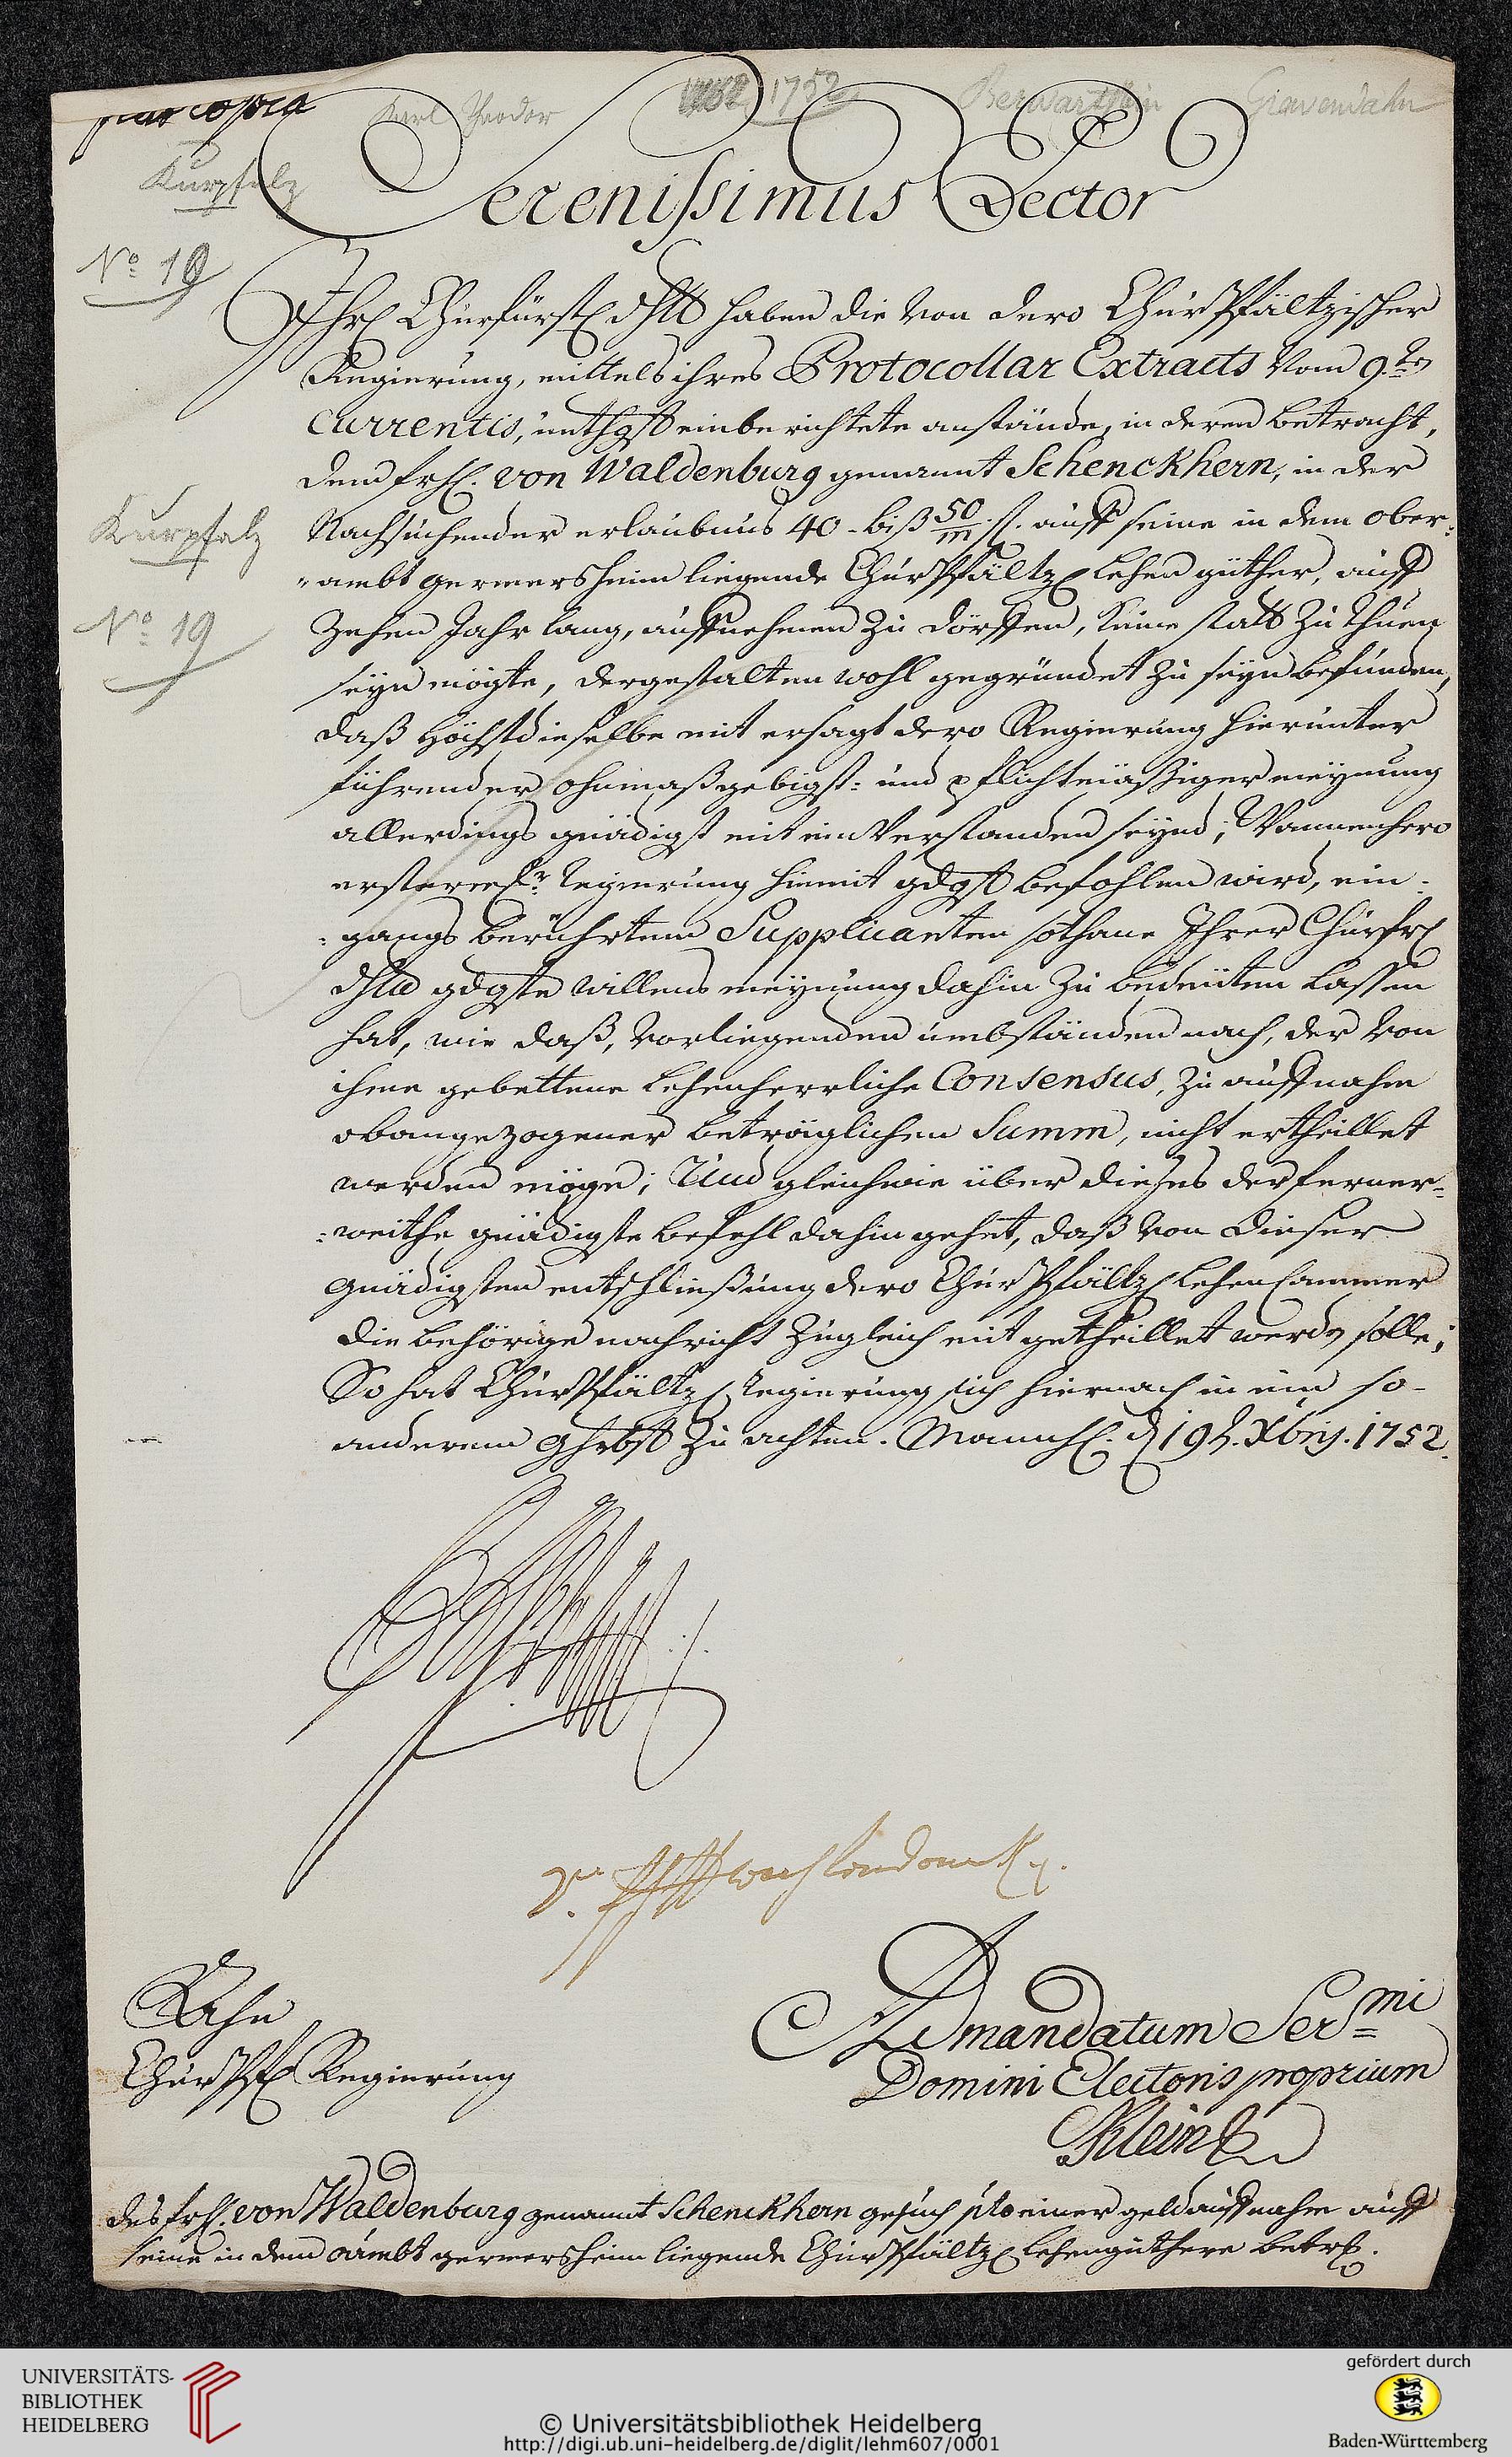 pro copia
Karl Theodor
1752
Berwartstein
Gravendahn
Kurpfalz
Serenissimus Elector
No 19
Ihro Churfürstl dhltt haben die von dero ChurPfältzischer
Regierung, mittels ihres Protocollar Extracts vom 9.ten
currentis, unthgst einberichtete anstände, in deren betracht,
dem frhl. von Waldenburg genannt Schenckhern, in der
Nachsuchender erlaubnus 40 - biß 50/m fl. auff seine in dem ober-
Kurpfalz
-ambt germersheim liegende ChurPfältz. Lehen güther, auff
No 19
Zehen Jahr lang, auffnehmen zu dörffen, keine statt zu thuen
seyn mögte, dergestalten wohl gegründet zu seyn befunden,
daß höchstdieselbe mit ersagt dero Regierung hierunter
führender ohnmaßgebigst- und pflichtmäßiger meynung
allerdings gnädigst mit einverstanden seynd; Wannenhero
Regierung hiemit gdgst befohlen wird, ein-
=gangs berührtem Supplicanten sothane Ihrer Churfrl
dhltt gdgste willens meynung dahin zu bedeuten lassen
hat, wie daß, vorliegenden umbständen nach, der von
ihme gebettene Lehenherrliche Consensus, zu auffnahm
obangezogener beträglichen Summ, nicht ertheillet
werden möge; Und gleichwie über dieses der ferner-
=weithe gnädigste befehl dahin gehet, daß von dieser
gnädigsten entschließung dero ChurPfältz Lehen Cammer
die behörige nachricht zugleich mit getheillet werden solle;
So hat ChurPfältz Regierung sich hiernach in ein so
anderem ghrbst zu achten. Mannh. d 19t. Xbris. 1752.
Ahn
ChurPfl Regierung
Ad mandatum Ser=mi
Domini Electoris proprium
Klein
des frhl. von Waldenburg genannt Schenckhern gesuch pto einer geld auffnahm auff
seine in dem oambt germersheim liegende ChurPfältz Lehengüthere betrl.
UNIVERSITÄTS-
BIBLIOTHEK
HEIDELBERG
© Universitätsbibliothek Heidelberg
http://digi.ub.uni-heidelberg.de/diglit/lehm607/0001
gefördert durch
Baden-Württemberg